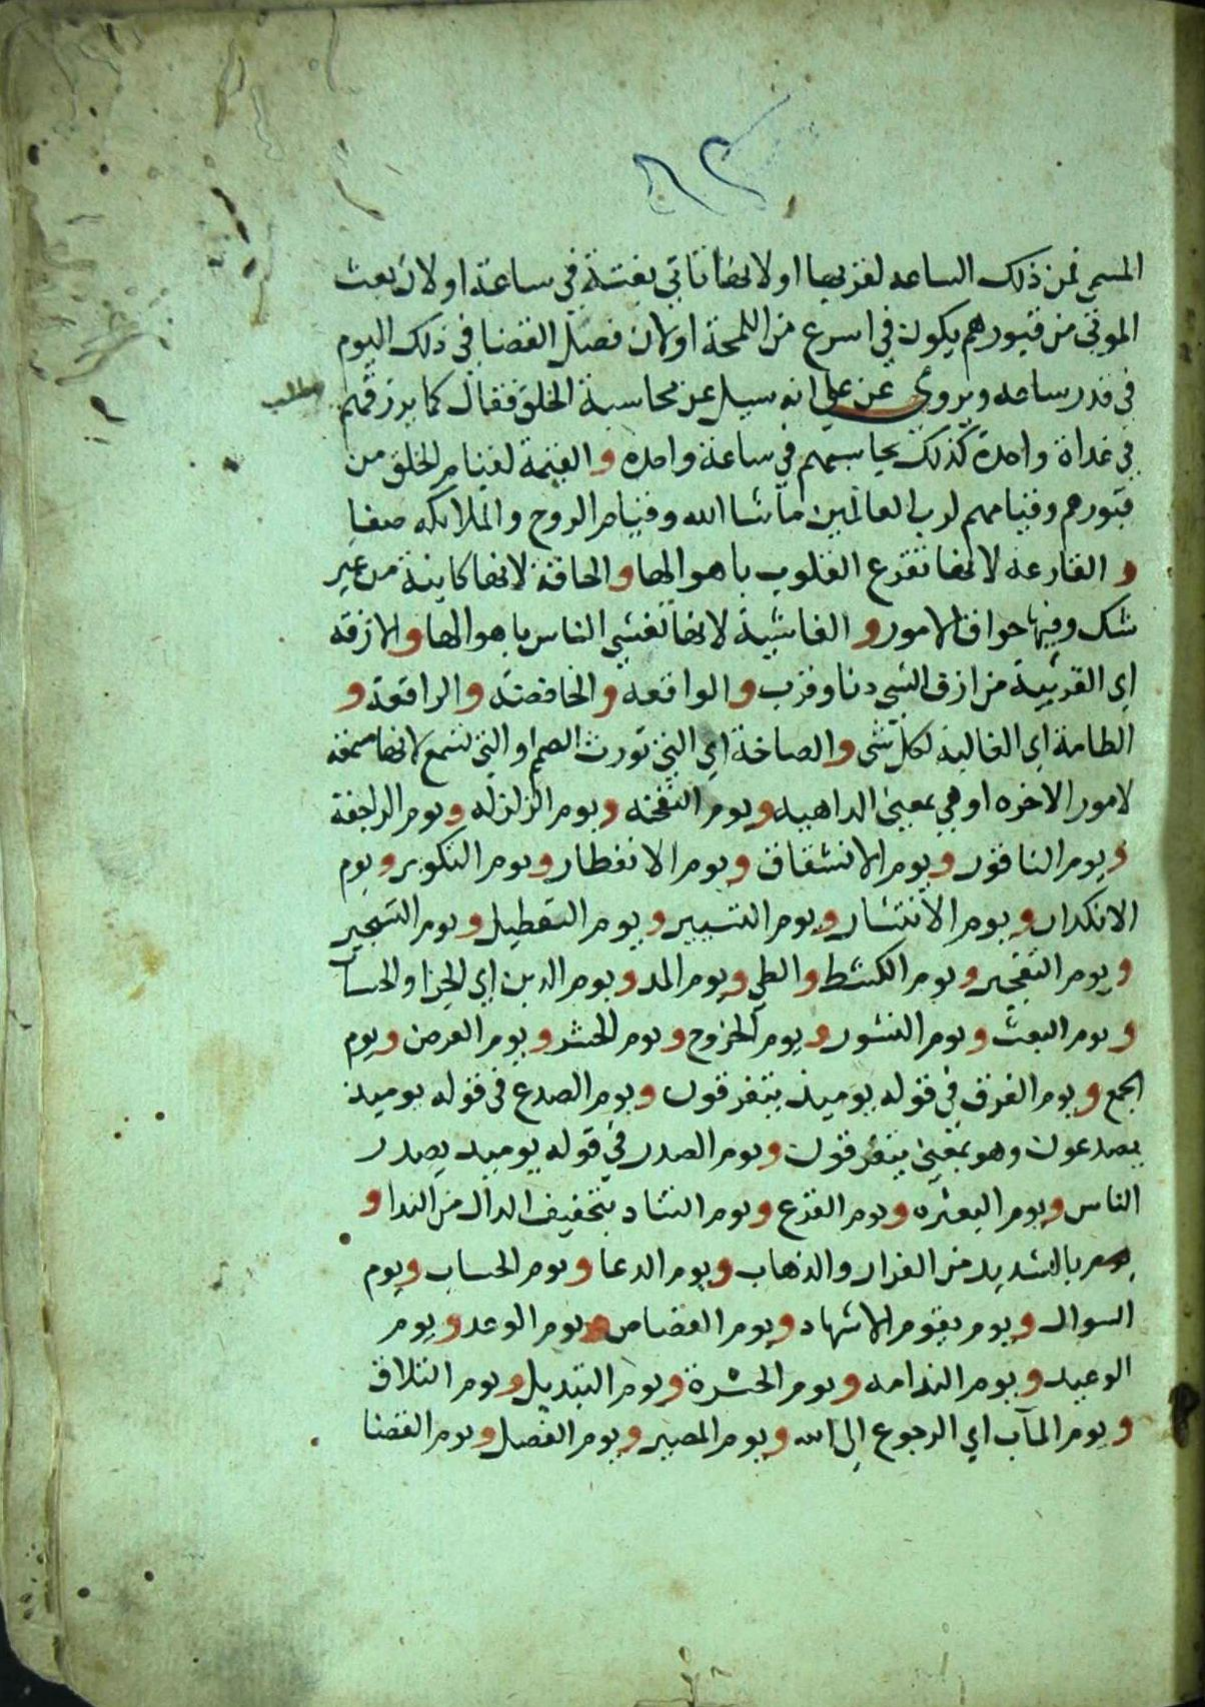 ٦٢
المسمى فمن ذلك الساعه لقربها او لانها تاتي بغتة في ساعة او لان بعث
الموتى من قبورهم يكون في اسرع من اللمحة او لان فصل القضا في ذلك اليوم
في قدر ساعه ويروى عن علي انه سيل عن محاسبة الخلق فقال كما يرزقهم
مطلب
في غداة واحدة كذلك يحاسبهم في ساعة واحده والقيمة لقيام الخلق من
قبورهم وقيامهم لرب العالمين ما شا الله وقيام الروح والملايكه صفا
والقارعة لانها تقرع القلوب باهوالها والحاقة لانها كاينة من غير
شك وفيها حواق الامور والغاشية لانها تغشي الناس باهوالها والازقه
اي القريبة من ازق الشي دنا وقرب والواقعه والخافضة والرافعة و
الطامة اي الغالبة لكل شى والصاخة اي التي تورث الصمم او التي تسمع لانها مسمعة
لامور الاخره او هي بمعنى الداهيه ويوم النفخة ويوم الزلزله ويوم الراجفة
ويوم الناقور ويوم الانشقاق ويوم الانفطار ويوم التكوير ويوم
الانكدار ويوم الانتشار ويوم التسيير ويوم التعطيل ويوم التسجير
ويوم التفجير ويوم الكشط والطي ويوم المد ويوم الدين اي الجزا والحساب
ويوم البعث ويوم النشور ويوم الخروج ويوم الحشر ويوم العرض ويوم
الجمع ويوم الفرق في قوله يوميذ يتفرقون ويوم الصدع في قوله يوميذ
يصدعون وهو بمعنى يتفرقون ويوم الصدر في قوله يوميذ يصدر
الناس ويوم البعثره ويوم الفزع ويوم التناد بتخفيف الدال من الندا و
بالتشديد من الفرار والذهاب ويوم الدعا ويوم الحساب ويوم
السوال ويوم يقوم الاشهاد ويوم القصاص ويوم الوعد ويوم
الوعيد ويوم الندامه ويوم الحسرة ويوم التبديل ويوم التلاق
ويوم المآب اي الرجوع الى الله ويوم المصير ويوم الفصل ويوم القضا